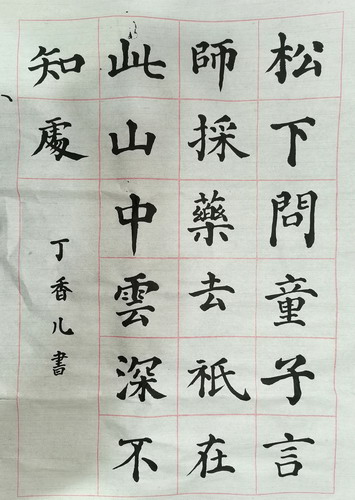 松下問童子言
師採藥去祇在
此山中雲深不
知處
丁香儿書